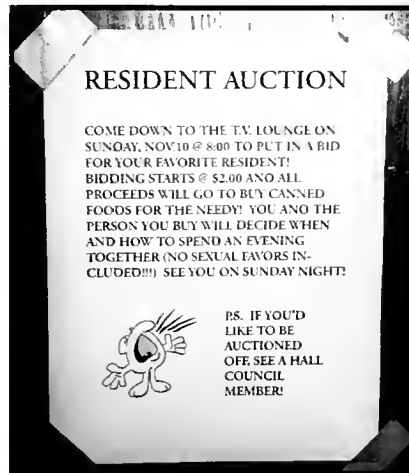 RESIDENT AUCTION
COME DOWN TO THE T.V. LOUNGE ON
SUNDAY, NOV.10 @ 8:00 TO PUT IN A BID
FOR YOUR FAVORITE RESIDENT!
BIDDING STARTS @ $2.00 AND ALL
PROCEEDS WILL GO TO BUY CANNED
FOODS FOR THE NEEDY! YOU AND THE
PERSON YOU BUY WILL DECIDE WHEN
AND HOW TO SPEND AN EVENING
TOGETHER (NO SEXUAL FAVORS IN-
CLUDED!!!) SEE YOU ON SUNDAY NIGHT!
P.S. IF YOU'D
LIKE TO BE
AUCTIONED
OFF, SEE A HALL
COUNCIL
MEMBER!